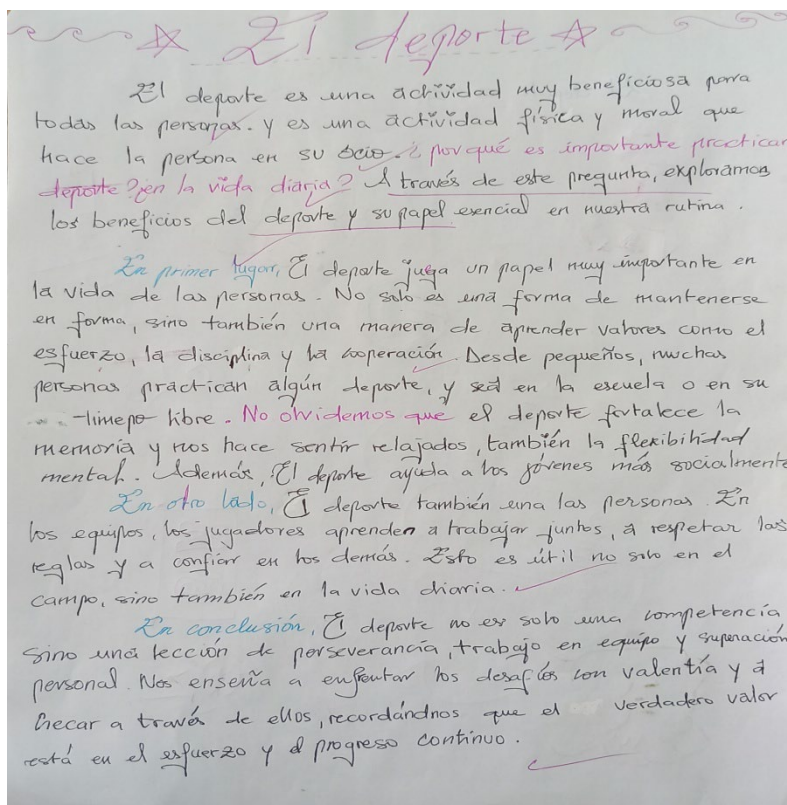 El deporte
El deporte es una actividad muy beneficiosa para
todas las personas. y es una actividad física y moral que
hace la persona en su ócio. ¿por qué es importante practicar
deporte? ¿en la vida diaria? A través de este pregunta, exploramos
los beneficios del deporte y su papel esencial en nuestra rutina.
En primer lugar, El deporte juega un papel muy importante en
la vida de las personas. No solo es una forma de mantenerse
en forma, sino también una manera de aprender valores como el
esfuerzo, la disciplina y la cooperación. Desde pequeños, muchas
personas practican algún deporte, y sea en la escuela o en su
timepo libre. No olvidemos que el deporte fortalece la
memoria y nos hace sentir relajados, también la flexibilidad
mental. Además, El deporte ayuda a los jóvenes más socialmente
En otro lado, El deporte también una las personas. En
los equipos, los jugadores aprenden a trabajar juntos, a respetar las
reglas y a confiar en los demás. Esto es útil no solo en el
campo, sino también en la vida diaria.
En conclusión, El deporte no es solo una competencia
sino una lección de perseverancia, trabajo en equipo y superación
personal. Nos enseña a enfrentar los desafíos con valentía y a
crecar a través de ellos, recordándnos que el verdadero valor
está en el esfuerzo y el progreso continuo.